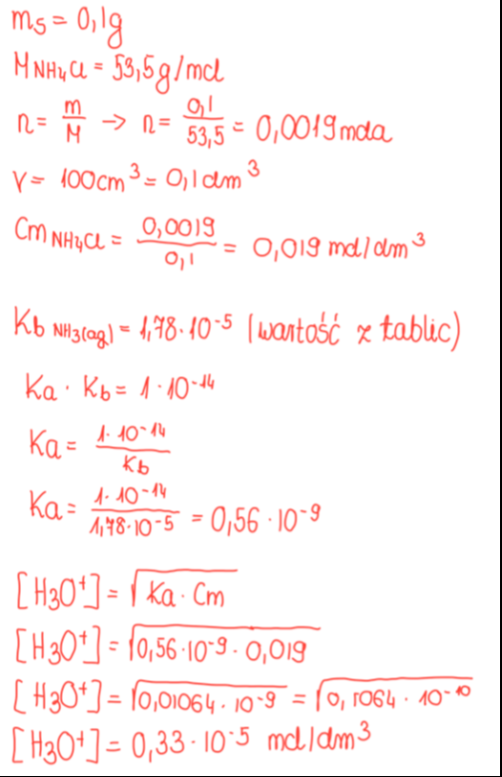 ms = 0,1g
M NH4Cl = 53,5g/mol
n = m/M → n = 0,1/53,5 = 0,0019 mola
V = 100cm³ = 0,1dm³
Cm NH4Cl = 0,0019/0,1 = 0,019 mol/dm³
Kb NH3(aq) = 1,78·10⁻⁵ (wartość z tablic)
Ka · Kb = 1·10⁻¹⁴
Ka = 1·10⁻¹⁴/Kb
Ka = 1·10⁻¹⁴/1,78·10⁻⁵ = 0,56·10⁻⁹
[H3O⁺] = √Ka·Cm
[H3O⁺] = √0,56·10⁻⁹·0,019
[H3O⁺] = √0,01064·10⁻⁹ = √0,1064·10⁻¹⁰
[H3O⁺] = 0,33·10⁻⁵ mol/dm³